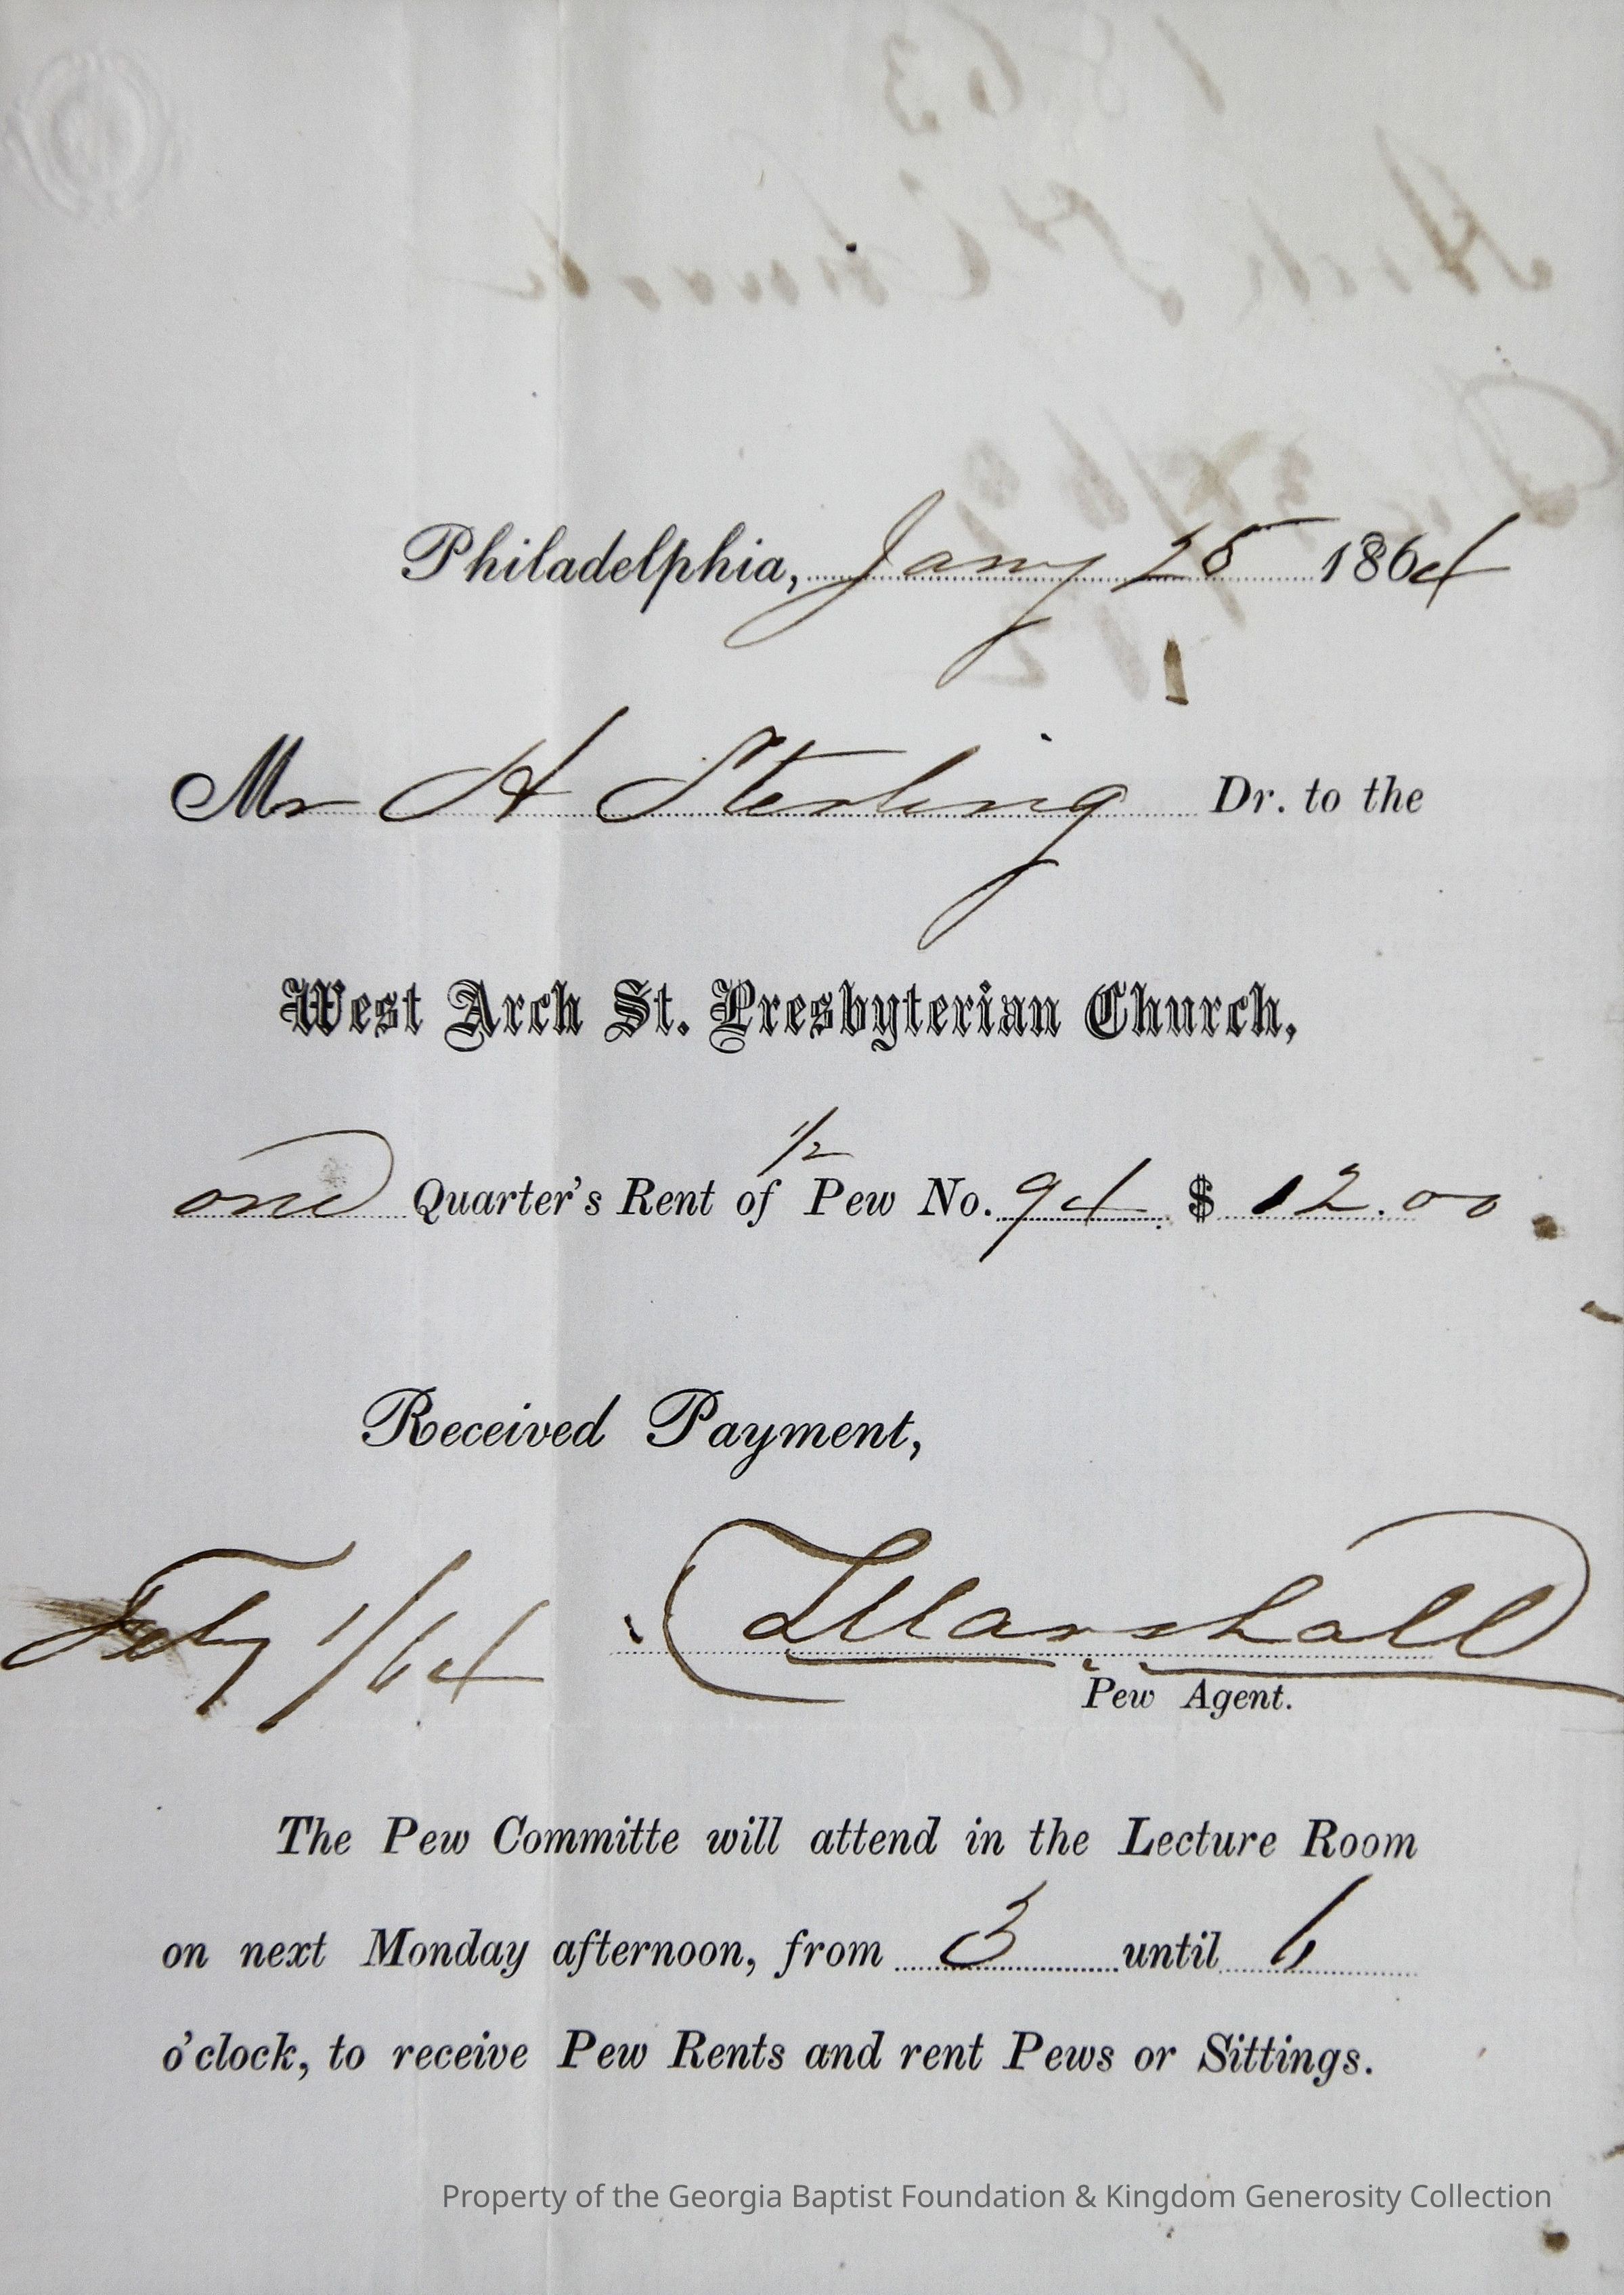 Philadelphia, Jany 25 1864
Mr H Sterling Dr. to the
West Arch St. Presbyterian Church,
one Quarter's Rent of 1/2 Pew No. 94 $ 12.00
Received Payment,
Feby 1/64 Marshall
Pew Agent.
The Pew Committe will attend in the Lecture Room
on next Monday afternoon, from 3 until 6
o'clock, to receive Pew Rents and rent Pews or Sittings.
Property of the Georgia Baptist Foundation & Kingdom Generosity Collection